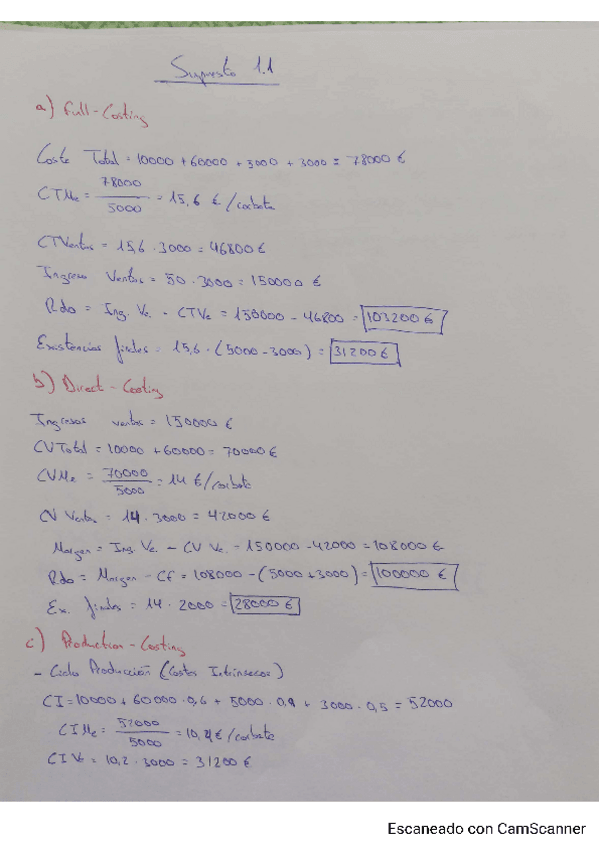 Supuesto 1.1
a) Full-Costing
Coste Total = 10000 + 60000 + 3000 + 3000 = 78000 €
CTMe = 78000 / 5000 = 15,6 € /corbata
CTVentas = 15,6 · 3000 = 46800 €
Ingreso Ventas = 50 · 3000 = 150000 €
Rdo = Ing. Ve. - CTVe = 150000 - 46800 = 103200 €
Existencias finales = 15,6 · (5000 - 3000) = 31200 €
b) Direct-Costing
Ingresos ventas = 150000 €
CVTotal = 10000 + 60000 = 70000 €
CVMe = 70000 / 5000 = 14 €/corbata
CV Ventas = 14 · 3000 = 42000 €
Margen = Ing. Ve. - CV Ve. = 150000 - 42000 = 108000 €
Rdo = Margen - CF = 108000 - (5000 + 3000) = 100000 €
Ex. finales = 14 · 2000 = 28000 €
c) Production-Costing
- Ciclo Producción (Costes Intrínsecos)
CI = 10000 + 60000 · 0,6 + 5000 · 0,9 + 3000 · 0,5 = 52000
CIMe = 52000 / 5000 = 10,4 €/corbata
CIVe = 10,2 · 3000 = 31200 €
Escaneado con CamScanner